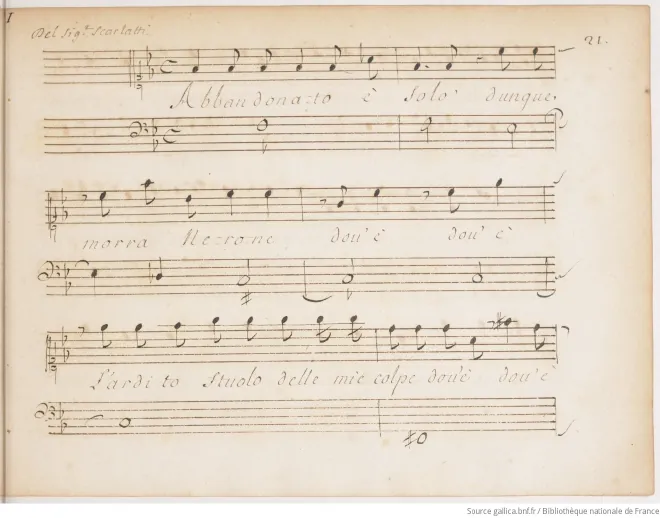 I
Del Sig.r Scarlatti
21.
Abbandonato è solo dunque
morra Nerone dou' è dou' è
l'ardito stuolo delle mie colpe dou'è dou'è
Source gallica.bnf.fr / Bibliothèque nationale de France